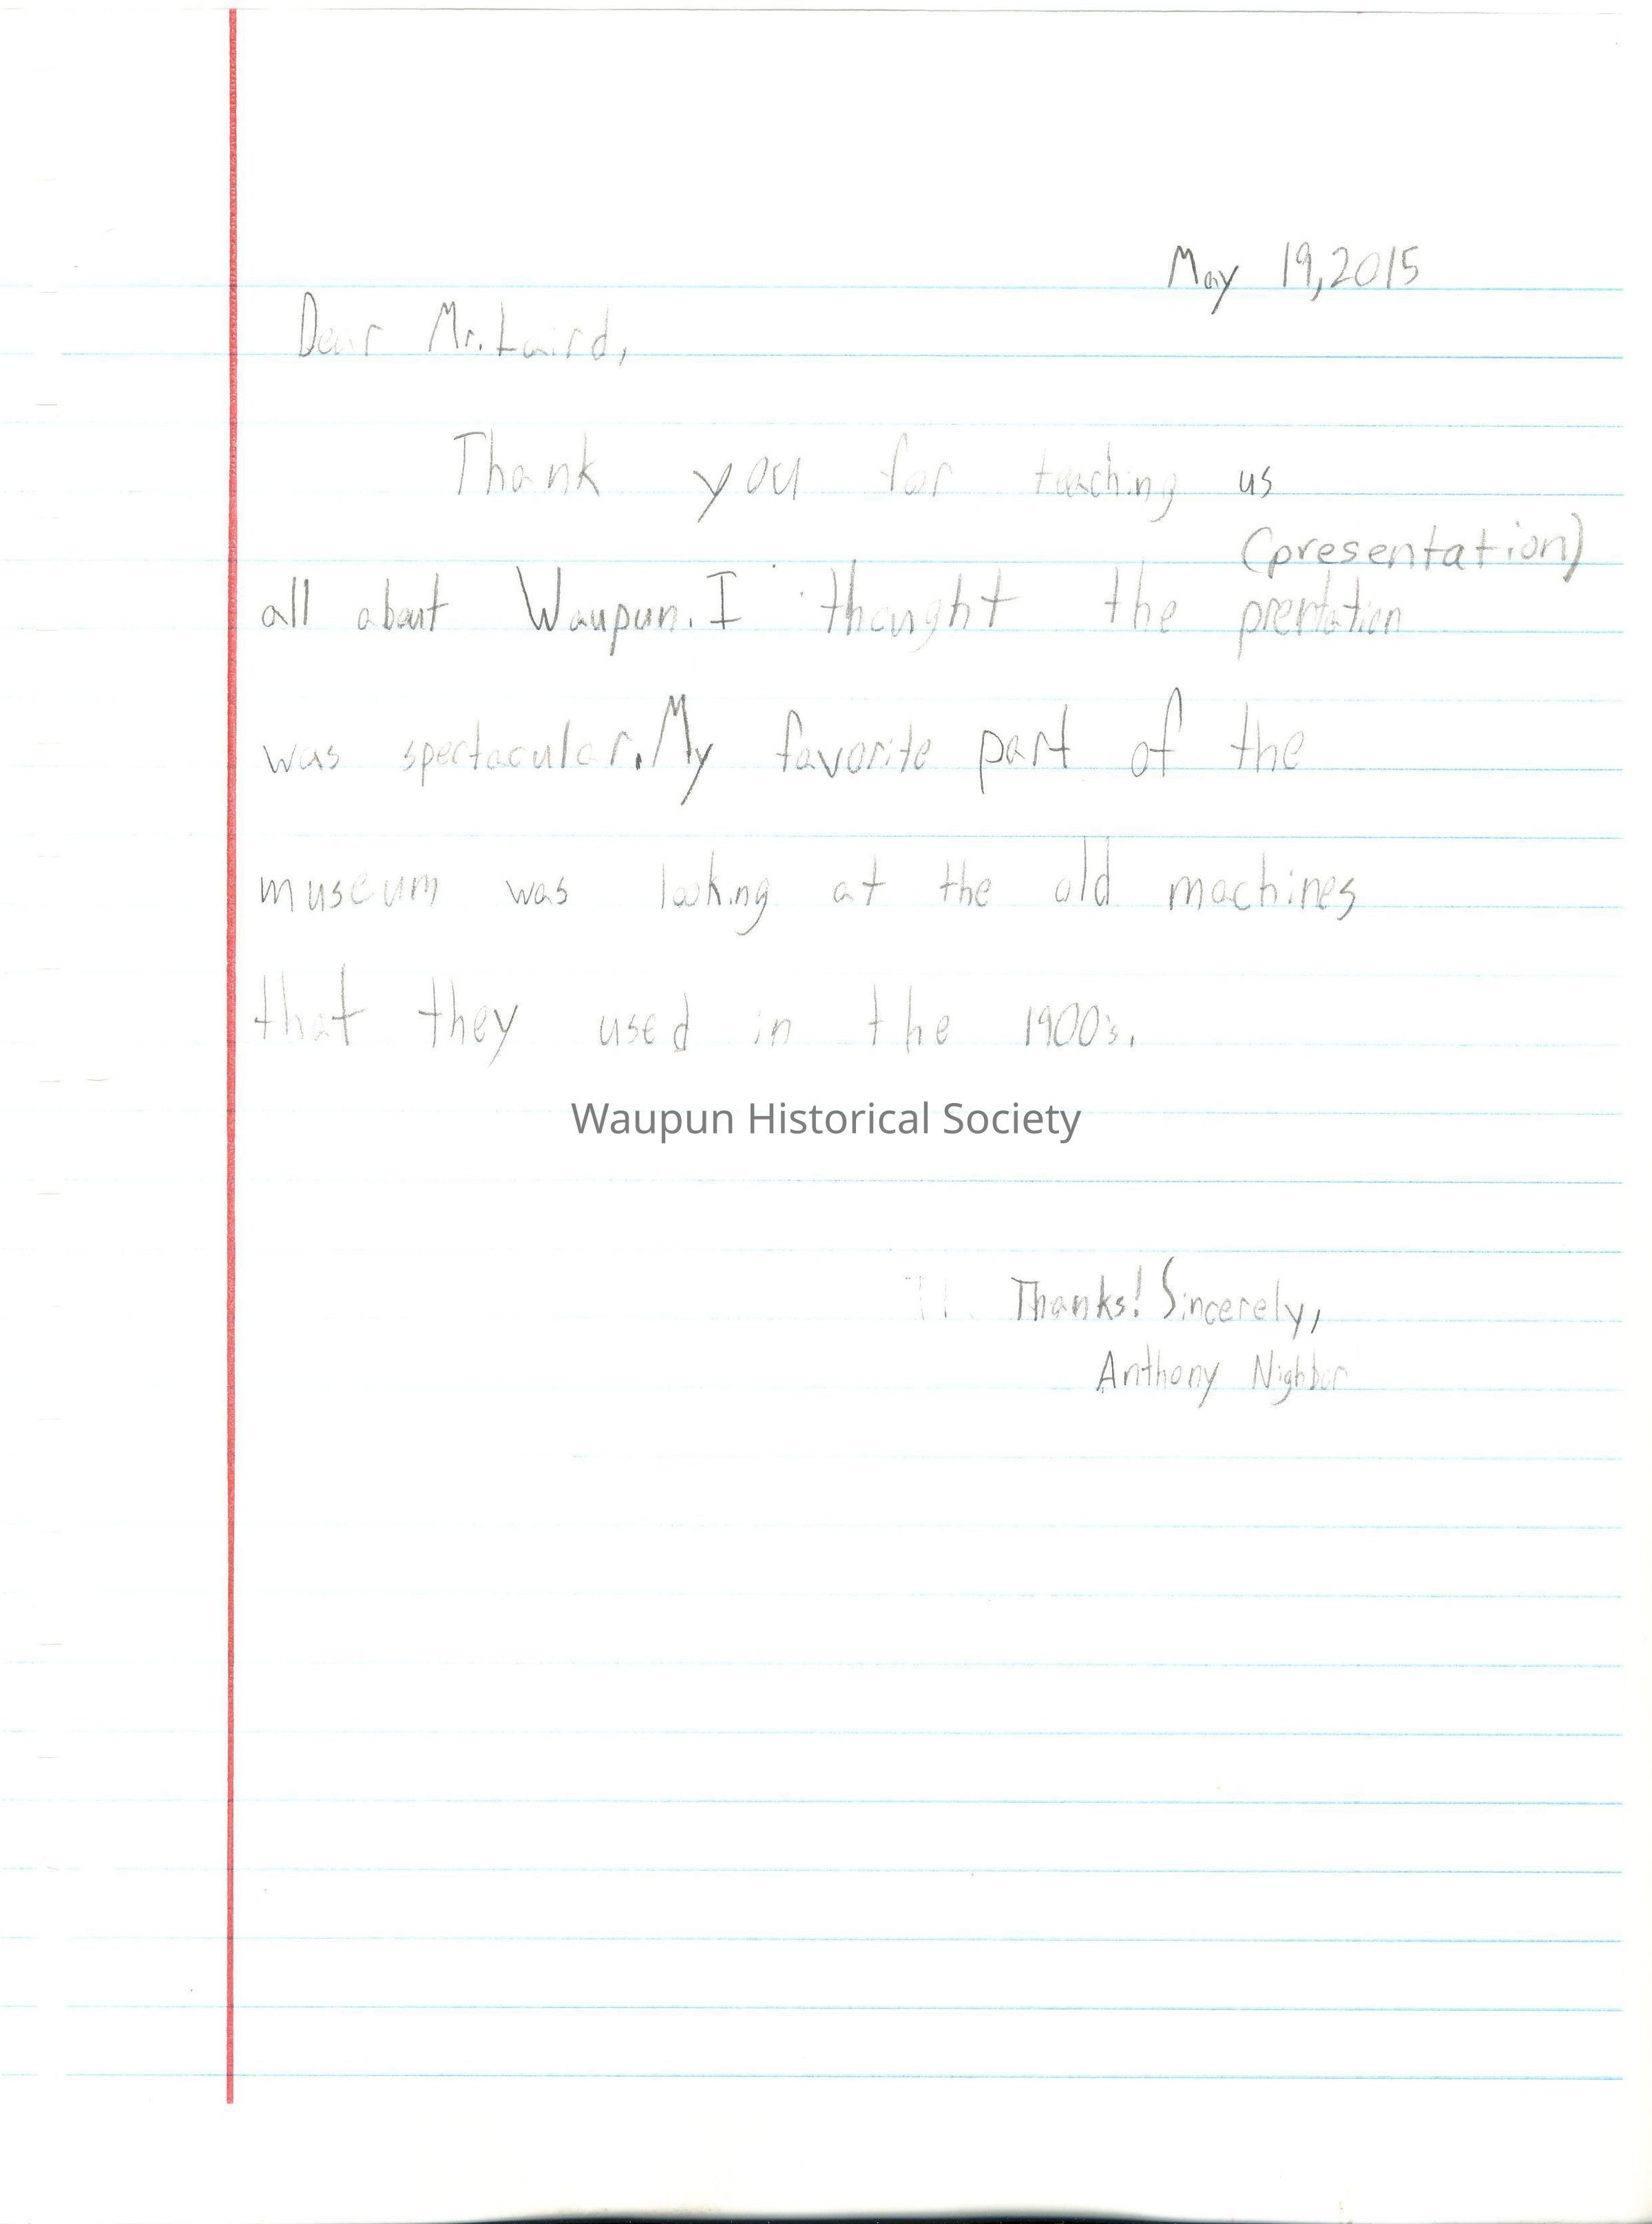 May 19, 2015
Dear Mr. Laird,
Thank you for teaching us
(presentation)
all about Waupun. I thought the prentation
was spectacular. My favorite part of the
museum was looking at the old machines
that they used in the 1900's.
Waupun Historical Society
Thanks! Sincerely,
Anthony Nighbor